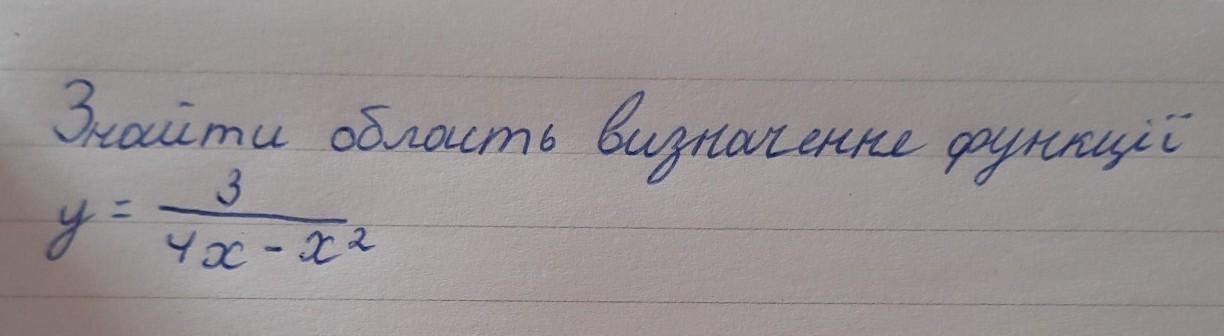 Знайти область визначення функції
y = 3 / (4x - x²)